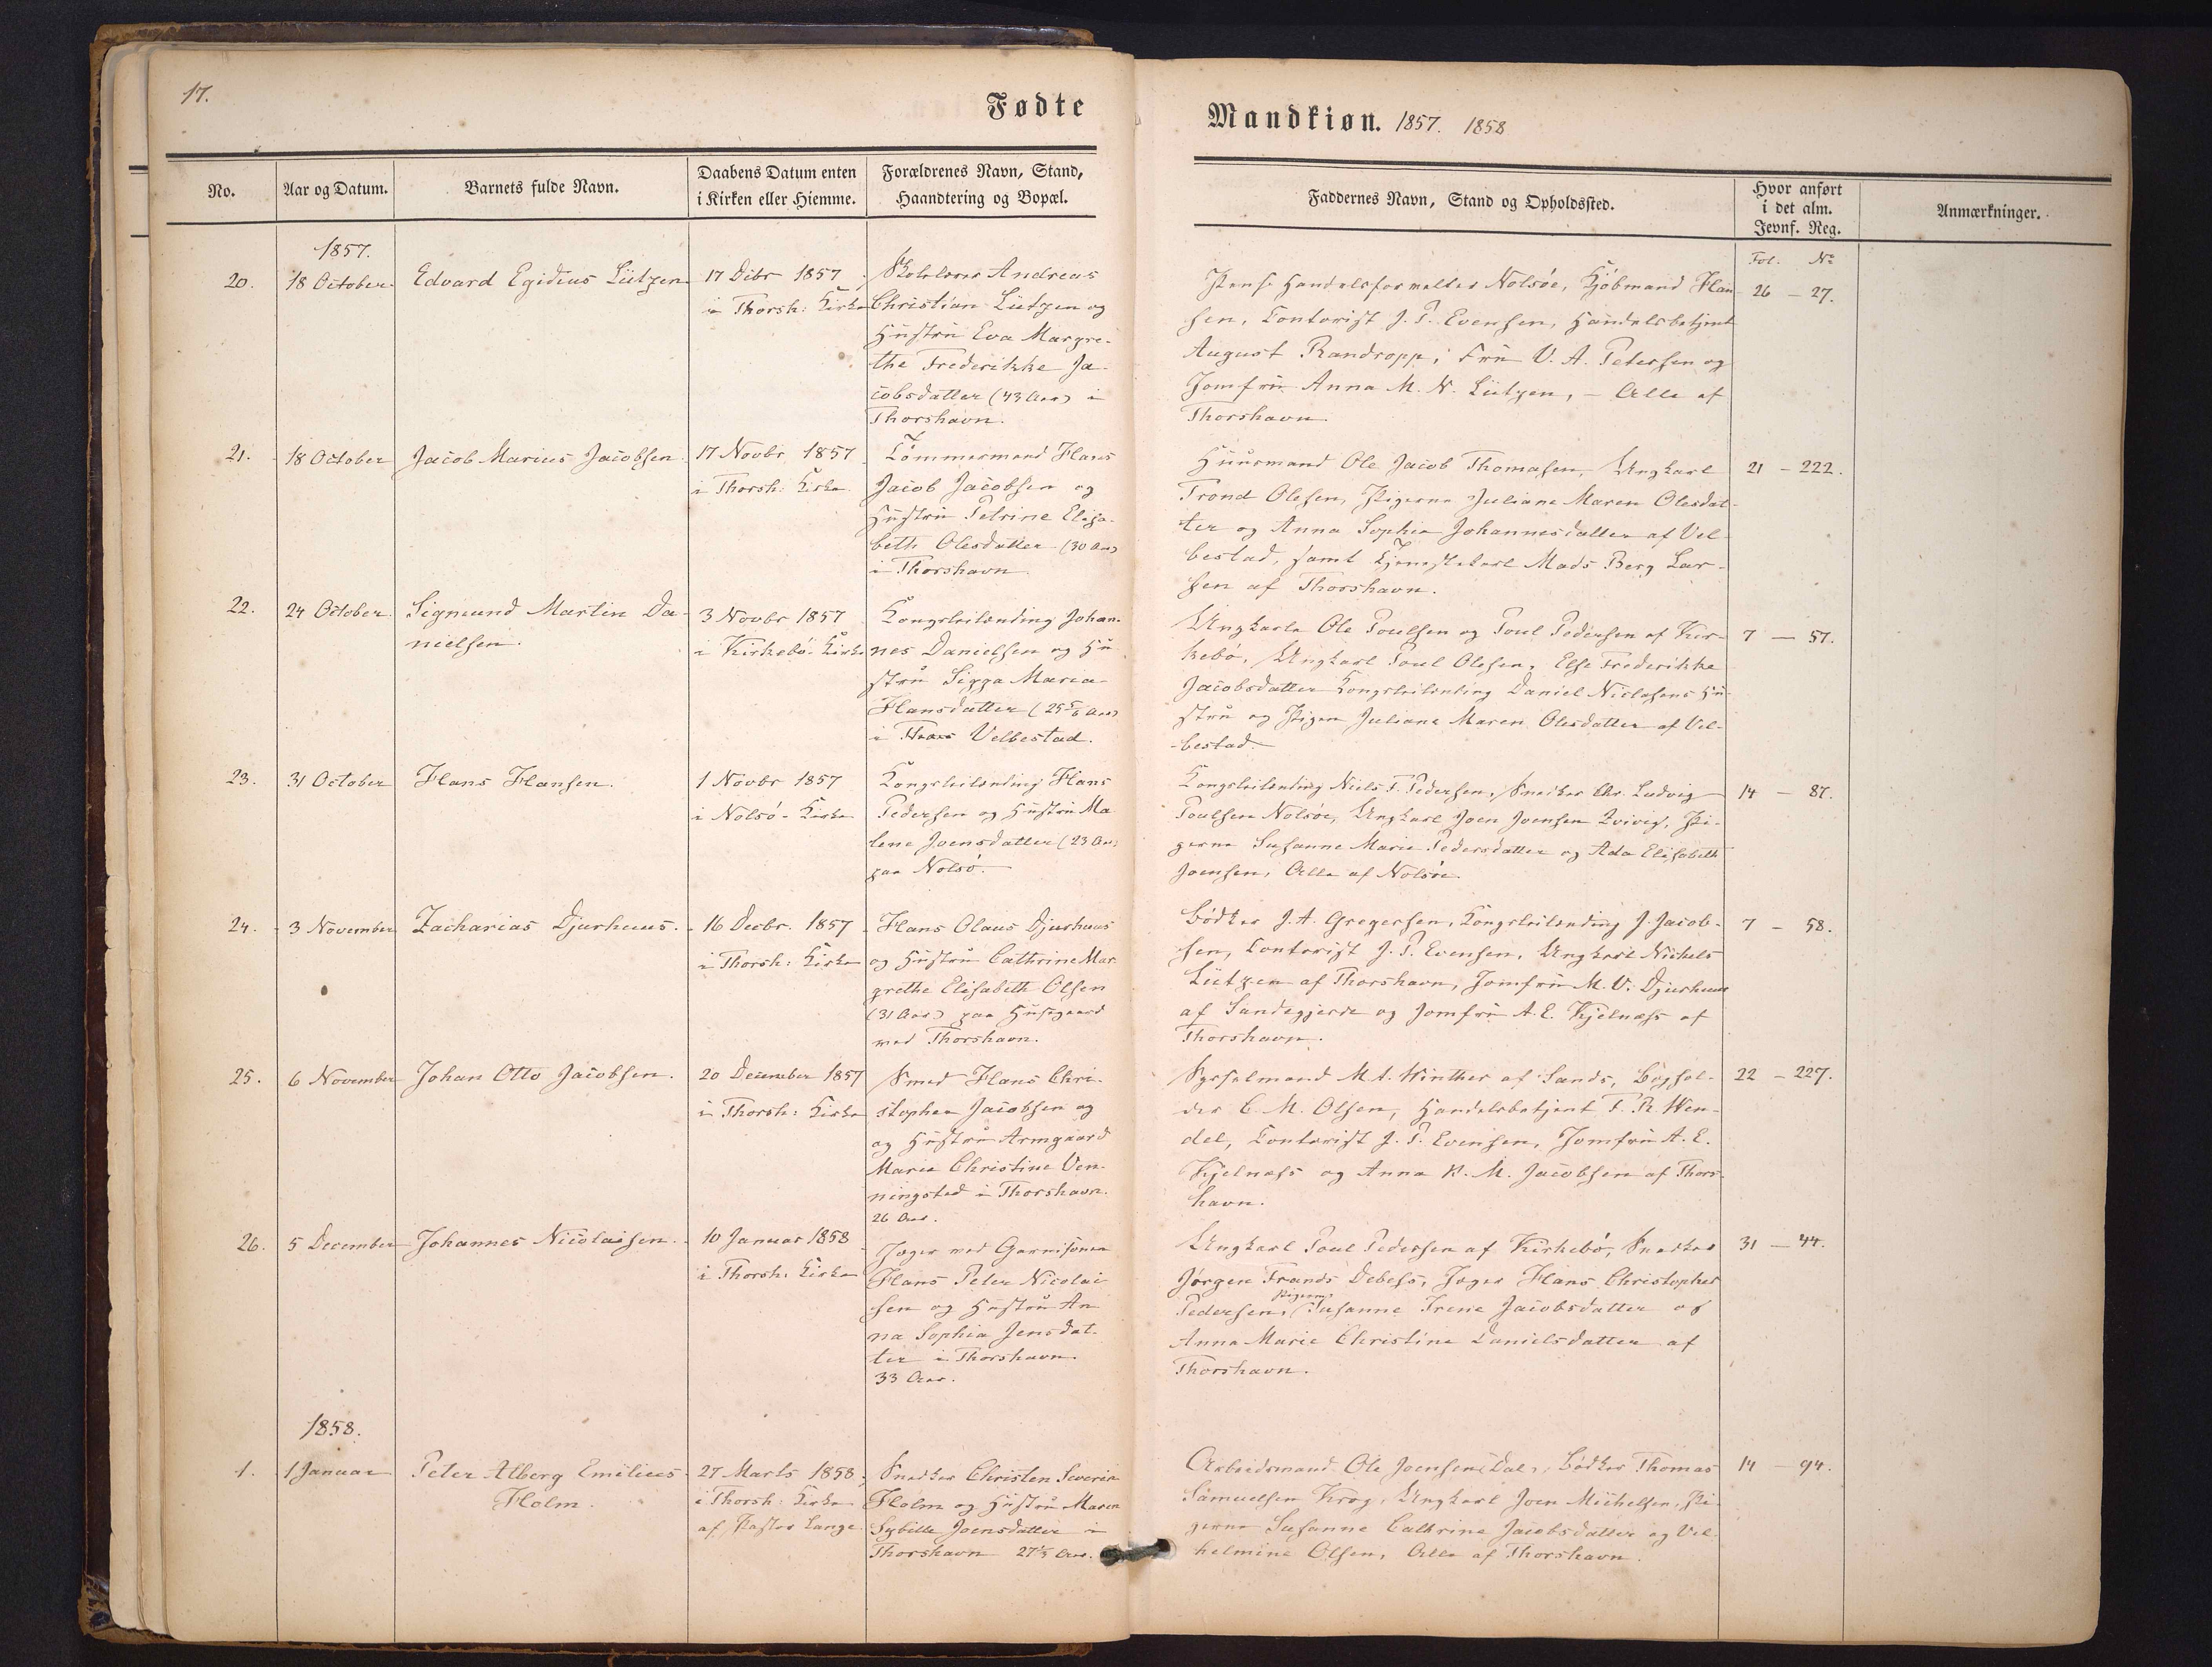 17.
Fødte
No.
Aar og Datum.
Barnets fulde Navn.
Daabens Datum enten
i Kirken eller Hiemme.
Forældrenes Navn, Stand,
Haandtering og Bopæl.
1857.
20.
18 October
Edvard Egidius Lützen
17 Decbr 1857
i Thorsh: Kirke
Skolelærer Andreas
Christian Lützen og
Hustru Eva Margre-
the Frederikke Ja-
cobsdatter (43 Aar) i
Thorshavn.
21.
18 October
Jacob Marius Jacobsen
17 Novbr 1857
i Thorsh: Kirke
Tømmermand Hans
Jacob Jacobsen og
Hustru Petrine Elisa-
beth Olesdatter (30 Aar)
i Thorshavn
22.
24 October
Sigmund Martin Da-
nielsen.
3 Novbr 1857
i Kirkebø Kirke
Kongsleilænding Johan-
nes Danielsen og Hu-
stru Sigga Maria
Hansdatter (25 5/6 Aar)
i Velbestad.
23.
31 October
Hans Hansen.
1 Novbr 1857
i Nolsø-Kirke
Kongsleilænding Hans
Pedersen og Hustru Ma
lene Joensdatter (23 Aar)
paa Nolsø.
24.
3 November
Zacharias Djurhuus.
16 Decbr. 1857
i Thorsh: Kirke
Hans Olaus Djurhuus
og Hustru Cathrine Mar
grethe Elisabeth Olsen
(31 Aar) paa Husegaard
ved Thorshavn.
25.
6 November
Johan Otto Jacobsen.
20 December 1857
i Thorsh: Kirke
Smed Hans Chri-
stopher Jacobsen og
og Hustru Armgaard
Marie Christine Ven-
ningsted i Thorshavn.
26 Aar.
26.
5 December
Johannes Nicolaisen.
10 Januar 1858
i Thorsh: Kirke
Jæger ved Garnisonen
Hans Peter Nicolai
sen og Hustru An
na Sophia Jensdat-
ter i Thorshavn.
33 Aar.
1858.
1.
1 Januar
Peter Atberg Emilius
Holm.
27 Marts 1858
i Thorsh: Kirke
af Pastor Lange
Snedker Christen Severin
Holm og Hustru Maren
Sybille Joensdatter i
Thorshavn 27 1/3 Aar.
Mandkiøn. 1857. 1858
Faddernes Navn, Stand og Opholdssted.
Hvor anført
i det alm.
Jevnf. Reg.
Anmærkninger.
Fol. No
Handelsforvalter Nolsøe, Kjøbmand Han
sen, Contorist J. P. Evensen, Handelsbetjent
August Randropp, Fru V. A. Petersen og
Jomfru Anna M. N. Lützen, - Alle af
Thorshavn
26 - 27.
Huusmand Ole Jacob Thomasen, Ungkarl
Trond Olesen, Pigerne Juliane Maren Olesdat-
ter og Anna Sophia Johannesdatter af Vel-
bestad, samt Tjenestekarl Mads Berg Lar-
sen af Thorshavn.
21 - 222.
Ungkarle Ole Poulsen og Poul Pedersen af Kir-
kebø, Ungkarl Poul Olesen, Else Frederikke
Jacobsdatter Kongsleilænding Daniel Niclasens Hu-
stru og Pigen Juliane Maren Olesdatter af Vel-
-bestad
7 - 57.
Kongsleilænding Niels F. Pedersen, Snedker Chr. Ludvig
Poulsen Nolsøe, Ungkarl Joen Joensen Qvivig, Pi-
gerne Susanne Marie Pedersdatter og Ada Elisabeth
Joensen, Alle af Nolsöe
14 - 87.
Bødker J. A. Gregersen, Kongsleilænding J. Jacob-
sen, Contorist J. P. Evensen, Ungkarl Nichels
Lützen af Thorshavn, Jomfru M. V. Djurhuus
af Sandegjerde og Jomfru A. E. Kjelnæss af
Thorshavn.
7 - 58.
Sysselmand M. A. Winther af Sands, Bøghol-
der C. M. Olsen, Handelsbetjent F. R. Wen-
del, Contorist J. P. Evensen, Jomfru A. E.
Kjelnæss og Anna K. M. Jacobsen af Thors-
havn.
22 - 227.
Ungkarl Poul Pedersen af Kirkebø, Snedker
Jørgen Frands Debess, Jæger Hans Christopher
Pigerne
Pedersen, Susanne Irene Jacobsdatter og
Anna Marie Christine Danielsdatter af
Thorshavn.
31 - 44.
Arbeidsmand Ole Joensen Dal, Bødker Thomas
Samuelsen Krog, Ungkarl Joen Michelsen, Pi-
gerne Susanne Cathrine Jacobsdatter og Vil-
helmine Olsen, Alle af Thorshavn.
14 - 94.